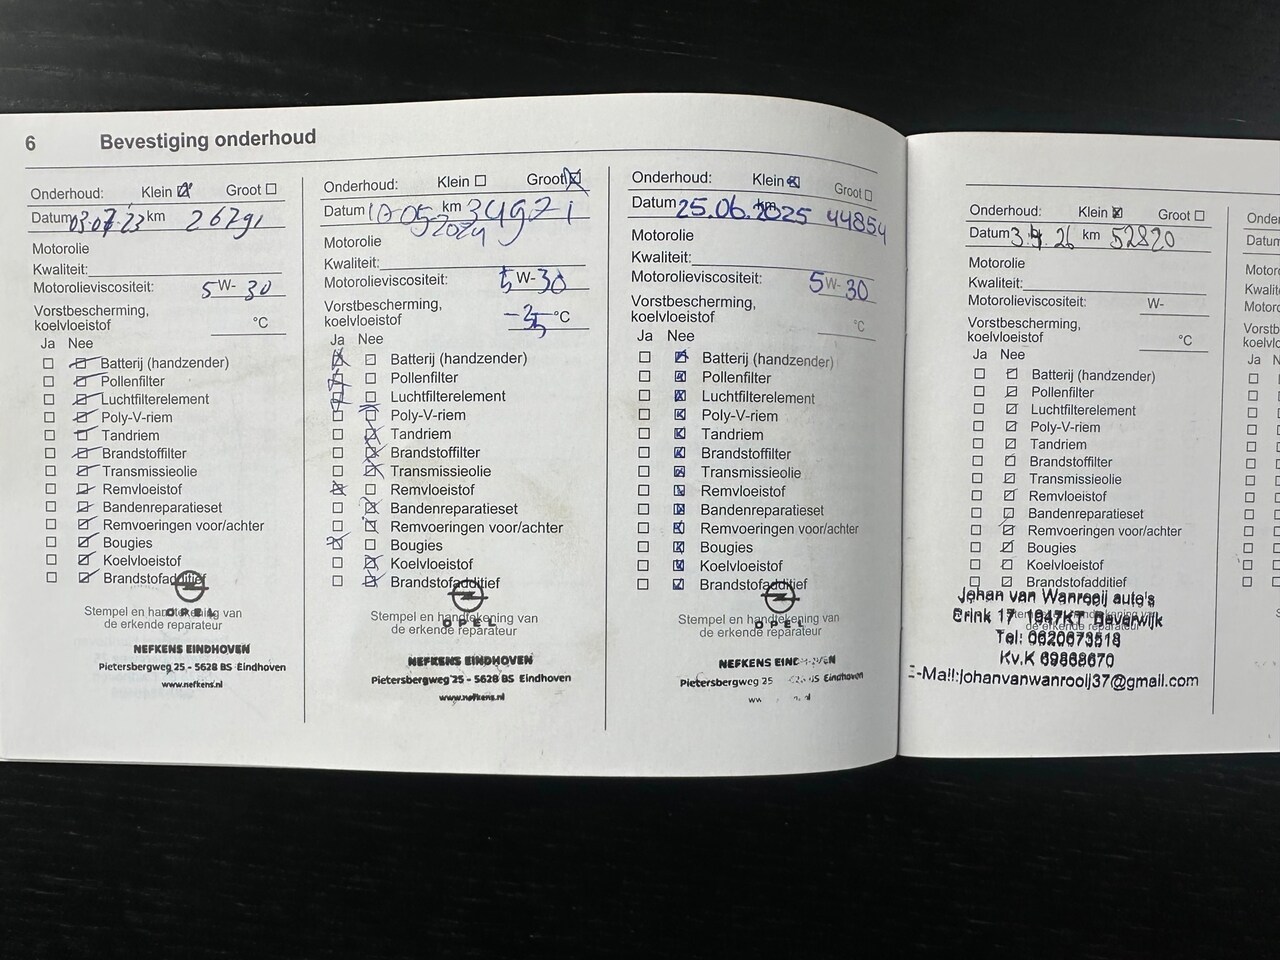 6 Bevestiging onderhoud
Onderhoud: Klein Groot
Datum 03.07.23 km 26791
Motorolie
Kwaliteit:
Motorolieviscositeit: 5 W- 30
Vorstbescherming,
koelvloeistof °C
Ja Nee
Batterij (handzender)
Pollenfilter
Luchtfilterelement
Poly-V-riem
Tandriem
Brandstoffilter
Transmissieolie
Remvloeistof
Bandenreparatieset
Remvoeringen voor/achter
Bougies
Koelvloeistof
Brandstofadditief
OPEL
Stempel en handtekening van
de erkende reparateur
NEFKENS EINDHOVEN
Pietersbergweg 25 - 5628 BS Eindhoven
www.nefkens.nl
Onderhoud: Klein Groot
Datum 17 05 2024 km 34971
Motorolie
Kwaliteit:
Motorolieviscositeit: 5 W- 30
Vorstbescherming,
koelvloeistof -35 °C
Ja Nee
Batterij (handzender)
Pollenfilter
Luchtfilterelement
Poly-V-riem
Tandriem
Brandstoffilter
Transmissieolie
Remvloeistof
Bandenreparatieset
Remvoeringen voor/achter
Bougies
Koelvloeistof
Brandstofadditief
OPEL
Stempel en handtekening van
de erkende reparateur
NEFKENS EINDHOVEN
Pietersbergweg 25 - 5628 BS Eindhoven
www.nefkens.nl
Onderhoud: Klein Groot
Datum 25.06.2025 km 44854
Motorolie
Kwaliteit:
Motorolieviscositeit: 5 W- 30
Vorstbescherming,
koelvloeistof °C
Ja Nee
Batterij (handzender)
Pollenfilter
Luchtfilterelement
Poly-V-riem
Tandriem
Brandstoffilter
Transmissieolie
Remvloeistof
Bandenreparatieset
Remvoeringen voor/achter
Bougies
Koelvloeistof
Brandstofadditief
OPEL
Stempel en handtekening van
de erkende reparateur
NEFKENS
Pietersbergweg 25 Eindhoven
Onderhoud: Klein Groot
Datum 26 km 52820
Motorolie
Kwaliteit:
Motorolieviscositeit: W-
Vorstbescherming,
koelvloeistof °C
Ja Nee
Batterij (handzender)
Pollenfilter
Luchtfilterelement
Poly-V-riem
Tandriem
Brandstoffilter
Transmissieolie
Remvloeistof
Bandenreparatieset
Remvoeringen voor/achter
Bougies
Koelvloeistof
Brandstofadditief
Johan van Wanrooij auto's
Erink 17 1947KT Beverwijk
de erkende reparateur
Tel: 0620673518
Kv.K 69868670
E-Mail:johanvanwanrooij37@gmail.com